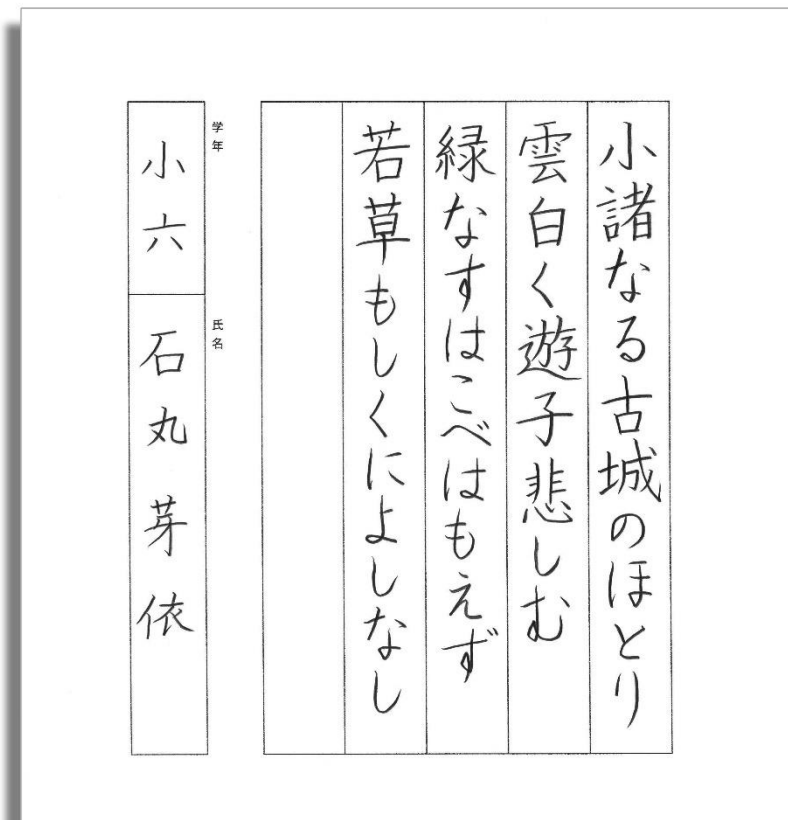 小諸なる古城のほとり
雲白く遊子悲しむ
緑なすはこべはもえず
若草もしくによしなし
学年
小六
氏名
石丸芽依